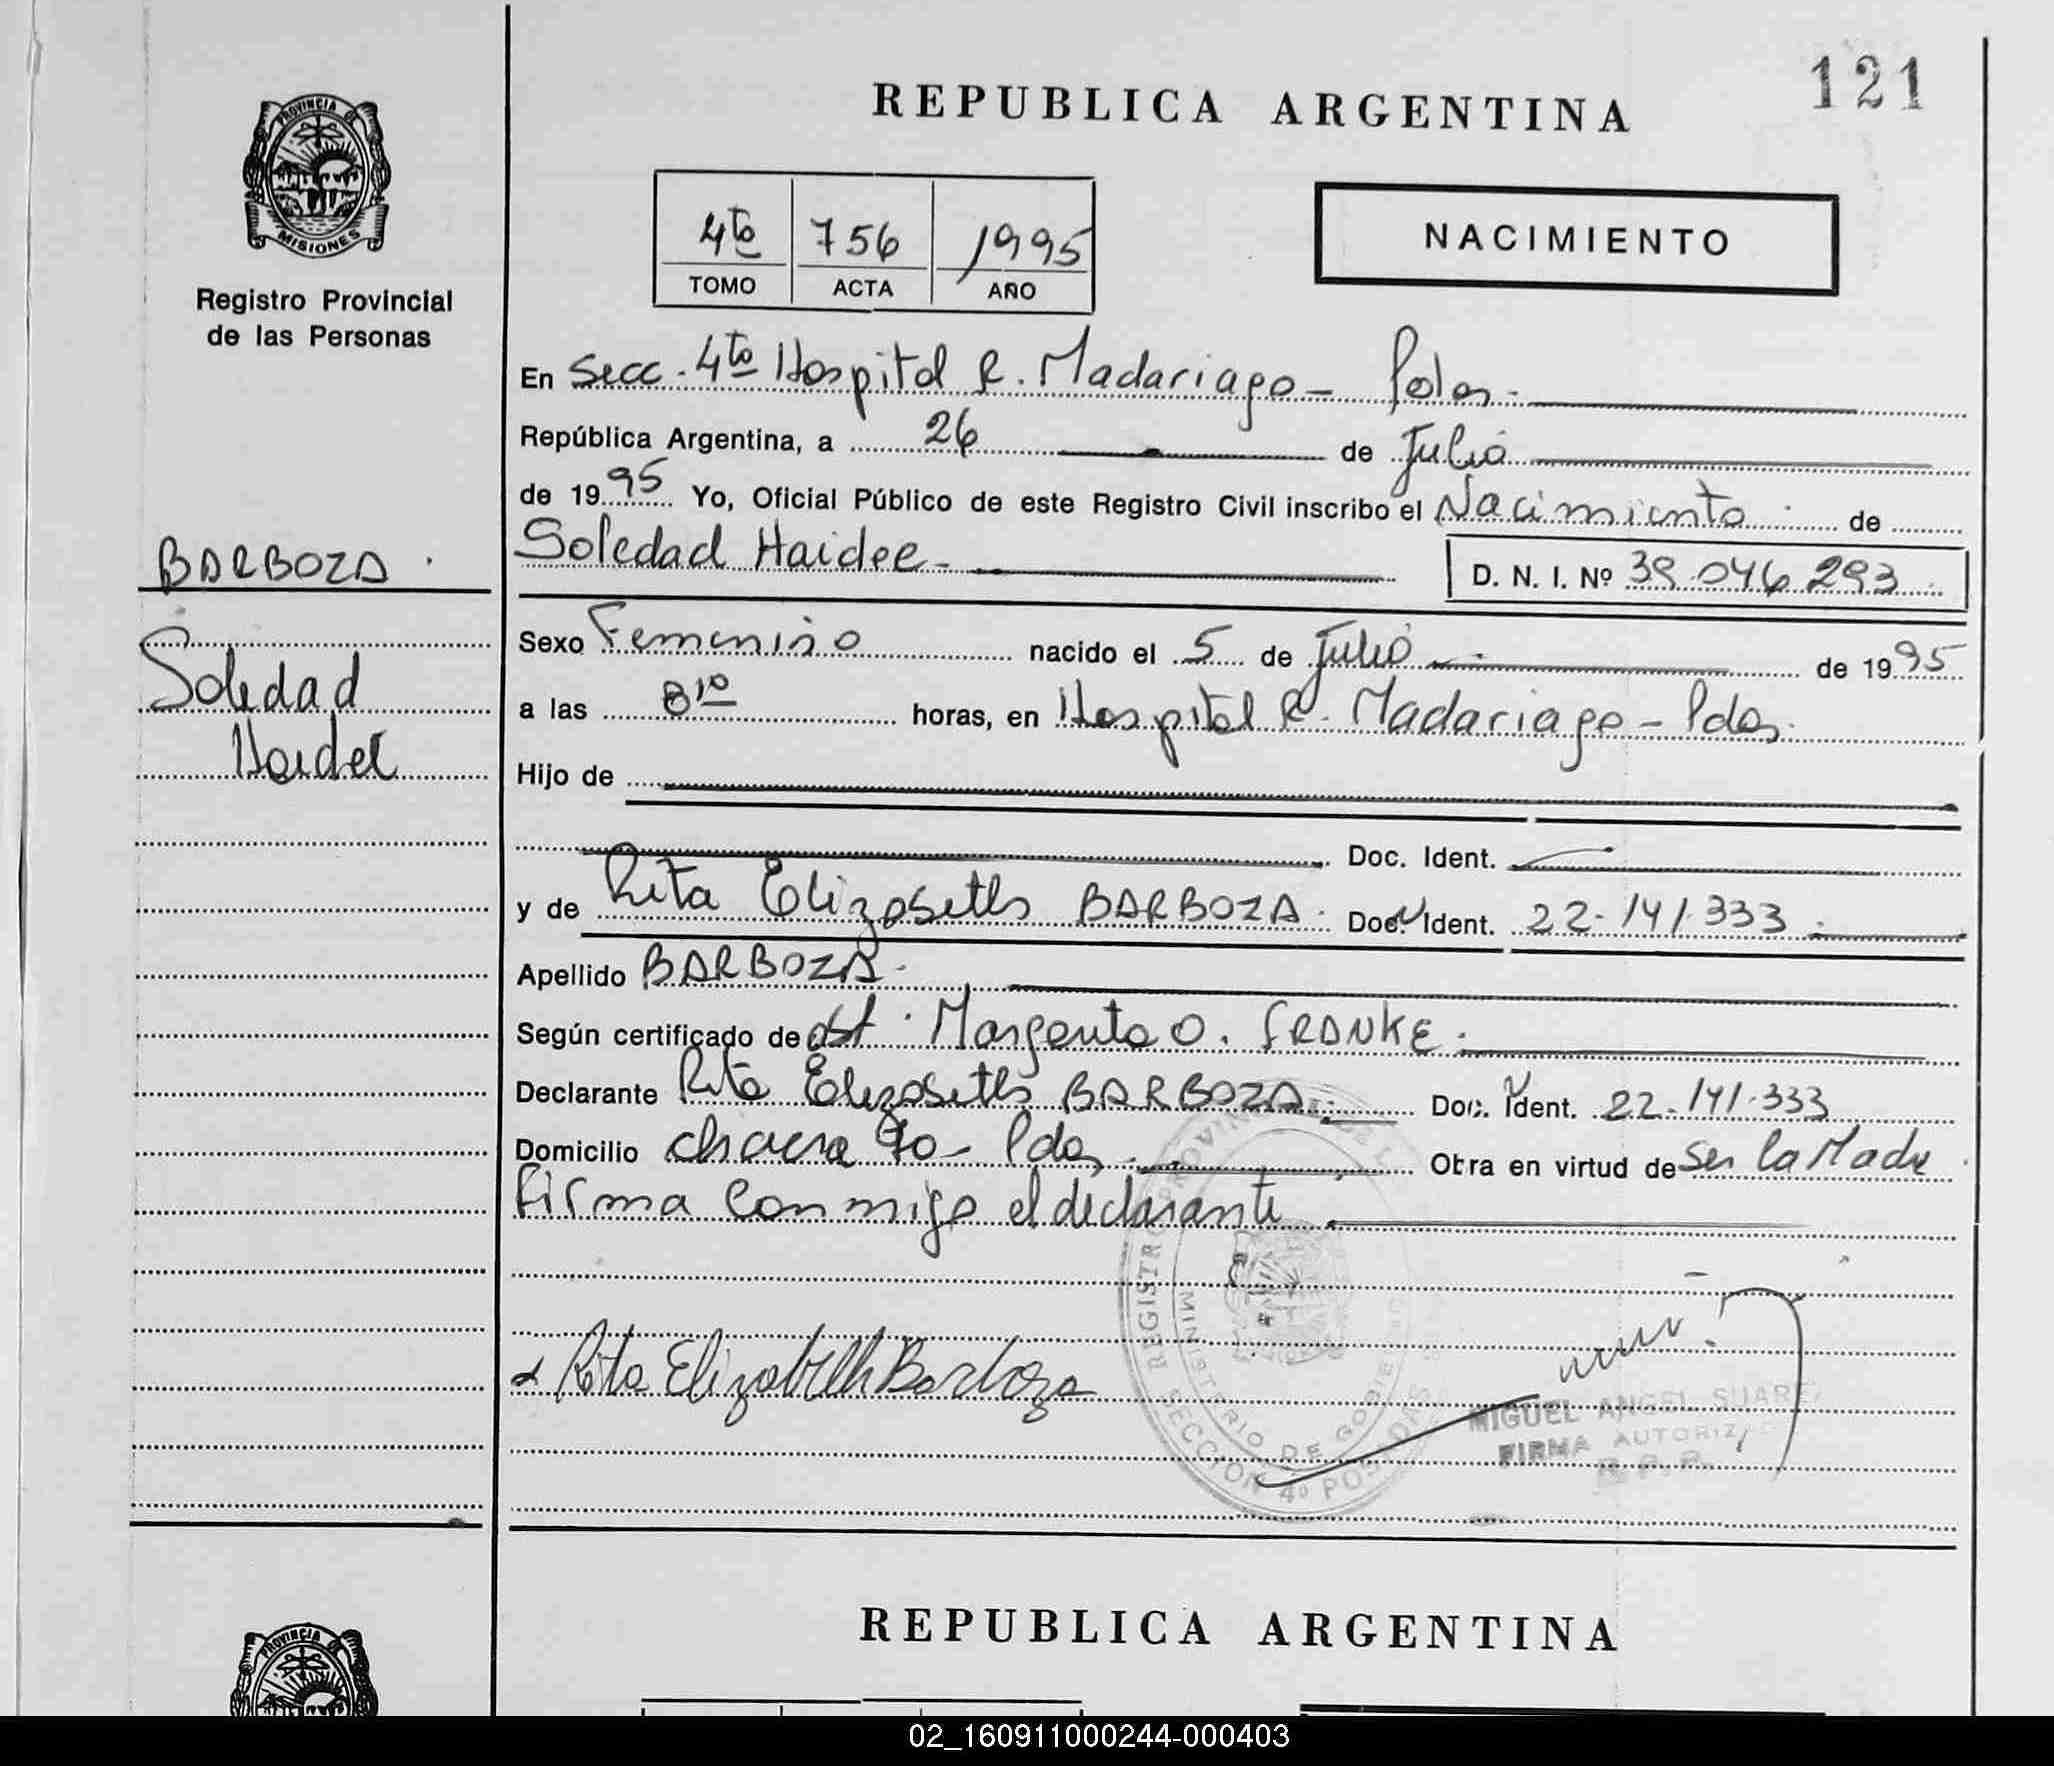 121
REPUBLICA ARGENTINA
PROVINCIA DE
MISIONES
Registro Provincial
de las Personas
4to 756 1995
TOMO ACTA AÑO
NACIMIENTO
En Secc. 4to Hospital R. Madariaga - Pdas.
República Argentina, a 26 de Julio
de 1995 Yo, Oficial Público de este Registro Civil inscribo el Nacimiento de
Soledad Haidee - D. N. I. Nº 39.046.293
BARBOZA
Soledad
Haidee
Sexo Femenino nacido el 5 de Julio de 1995
a las 8 10 horas, en Hospital R. Madariaga - Pdas.
Hijo de
Doc. Ident.
y de Rita Elizabeth BARBOZA. Doc. Ident. 22.141.333
Apellido BARBOZA.
Según certificado de Obst. Margarita O. FRANKE.
Declarante Rita Elizabeth BARBOZA Doc. Ident. 22.141.333
Domicilio chacra 90 - Pdas. Obra en virtud de Ser la Madre.
Firma conmigo el declarante
Rita Elizabeth Barboza
REGISTRO PROVINCIAL DE L
MINISTERIO DE GOBIE
SECCION 4º POSADAS
MIGUEL ANGEL SUAREZ
FIRMA AUTORIZ
R. P. P.
REPUBLICA ARGENTINA
PROVINCIA DE
02_160911000244-000403